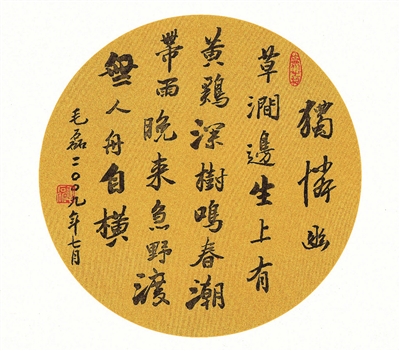 獨憐幽
草澗邊生上有
黄鸝深樹鳴春潮
帶雨晚来急野渡
無人舟自橫
毛磊二〇〇九年七月